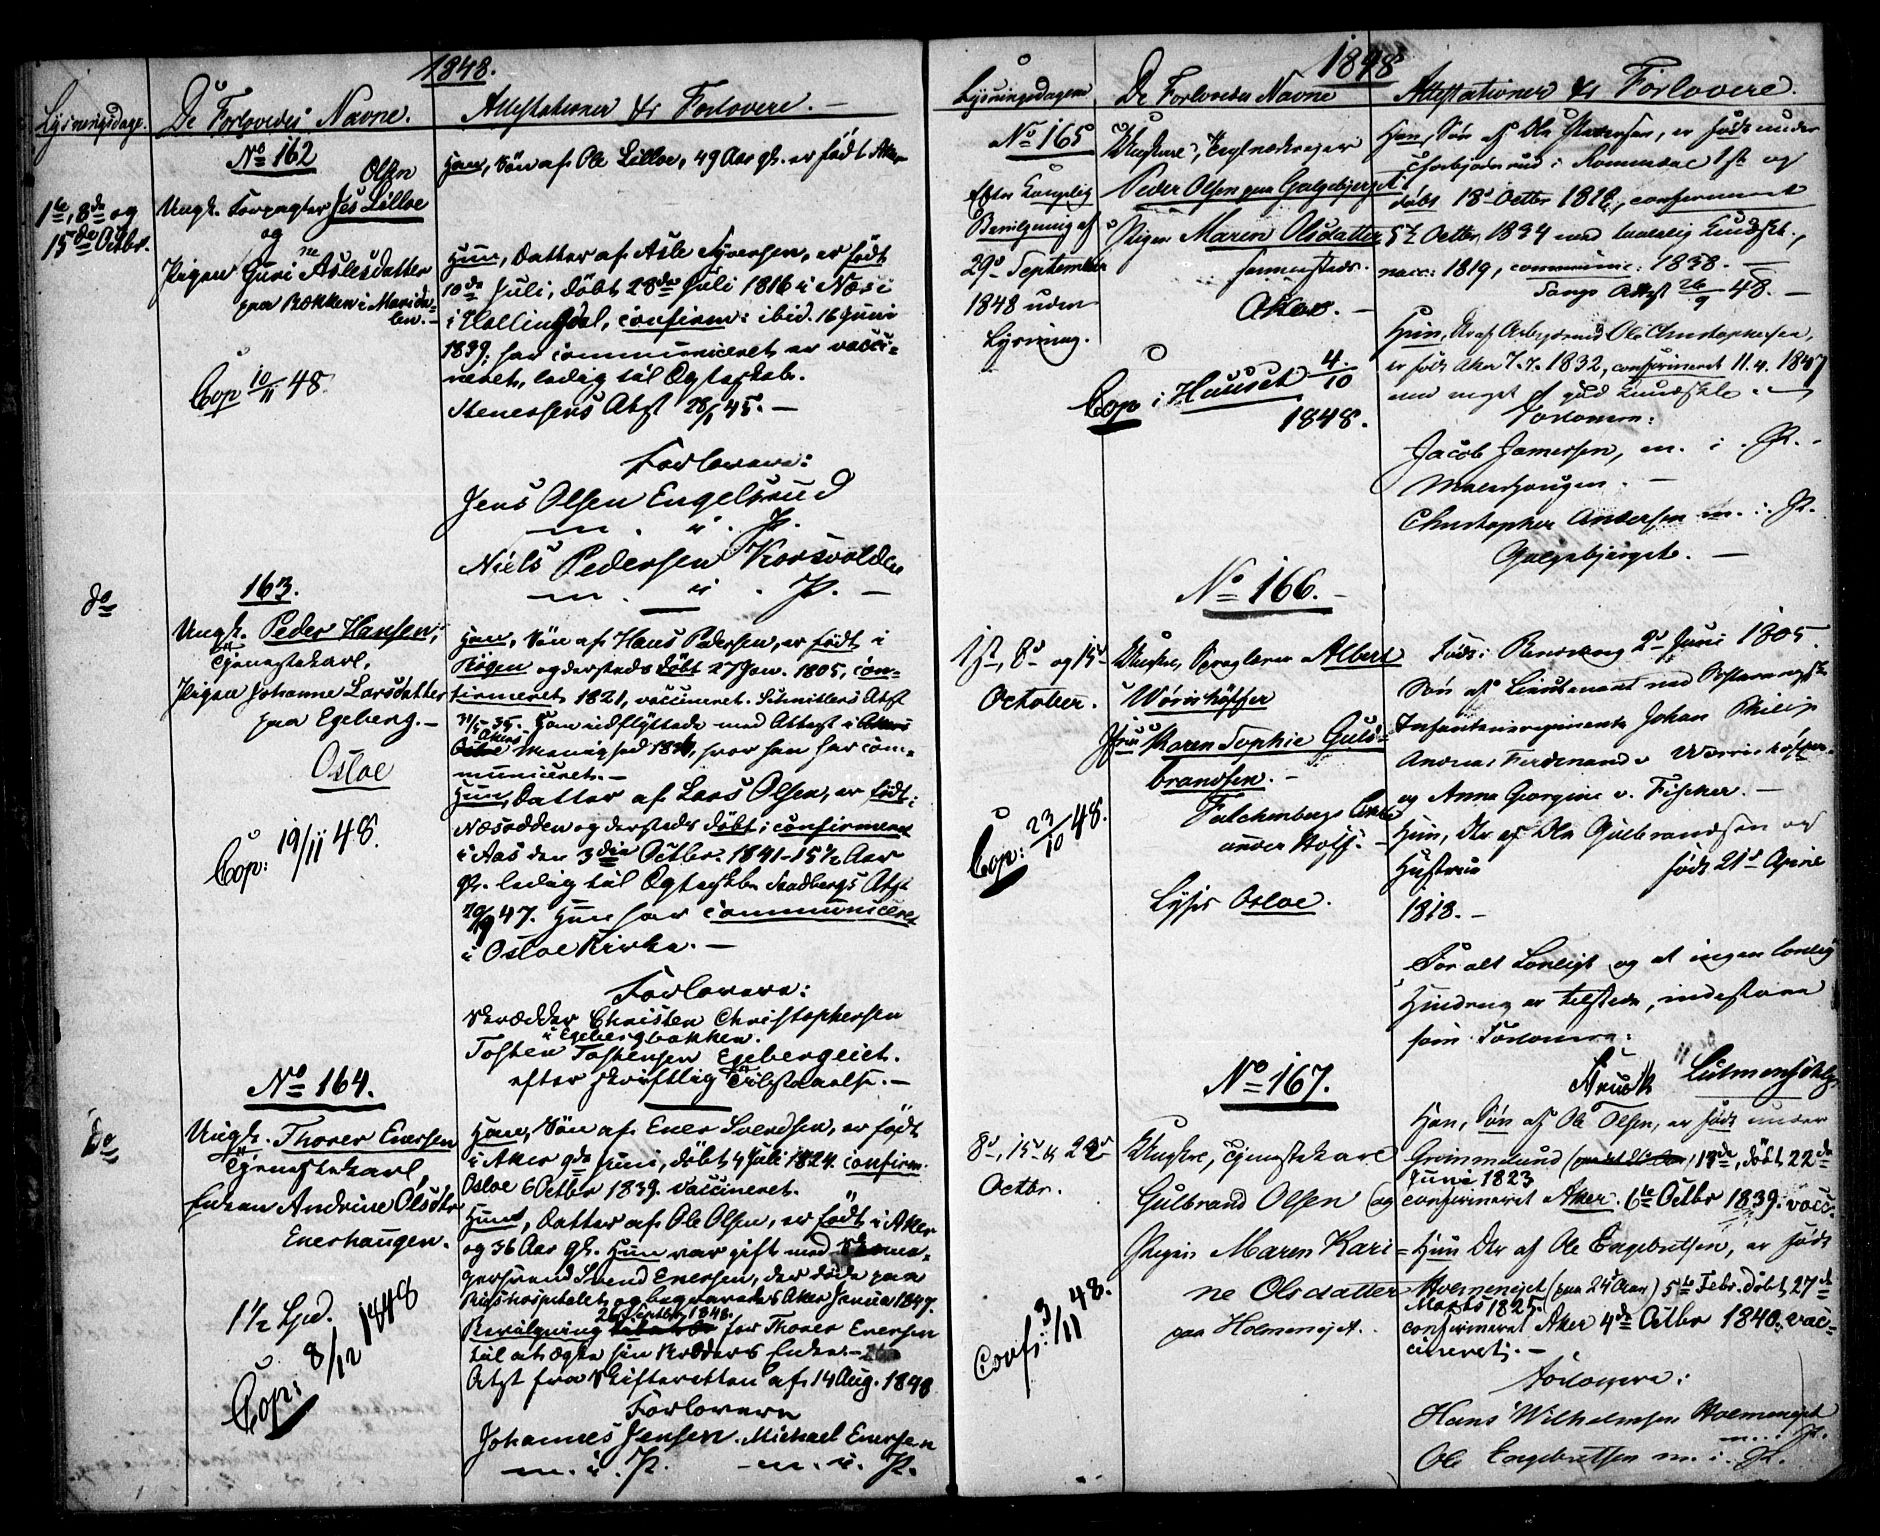 1848.
Lysningsdage.
De Forlovedes Navne.
Attestationer & Forlovere. —
No 162
1te, 8de og
15de Octbr.
Olsen
Ungk. Forpagter Jes Lilloe
og
Pigen Guri Aslesdatter
paa Bakken i Marida-
len. —
Cop 10/11 48.
Han, Søn af Ole Lilloe, 49 Aar gl. er født Aker
Hun, Datter af Asle Syversen, er født
10de Juli, døbt 28de Juli 1816 i Næs i
i Hallingdal, confirm: ibid. 16 Juni
1839; har communiceret er vacci-
neret, ledig til Ægteskab.
Stenersens Atst 28/1 45. —
Forlovere:
Jens Olsen Engelsrud
m. i. P.
Niels Pedersen Korsvolden
m. i. P. —
do
163.
Ungk. Peder Hansen,
Tjenestekarl,
Pigen Johanne Larsdatter
paa Egeberg. —
Osloe
Cop: 19/11 48.
Han, Søn af Hans Pedersen, er født i
Røgen og dersteds døbt 27 Jan. 1805, con-
firmeret 1821, vaccineret. Schnitlers Atst
35. Han udflyttede med Attest i
Akers
Menighed, hvor han har com-
municeret. —
Hun, Datter af Lars Olsen, er født i
Næsodden og dersteds døbt; confirmeret
i Aas den 3die Octbr. 1841 - 15½ Aar
gl. ledig til Ægteskb. Stadbergs Atst
47. Hun har communiceret
i Osloe Kirke. —
Forlovere:
Skrædder Christen Christophersen
i Egebergbakken.
Tosten Tostensen Egebergeiet.
efter skriftlig Tilstaaelse. —
No 164.
do
Ungk. Thorer Enersen
Tjenestekarl
Enken Andrine Olsdtr
Enerhaugen.
1½ Spd.
Cop: 8/12 1848
Han, Søn af Ener Svendsen, er født
i Aker 9de Juni, døbt 4 Juli 1824. confirm.
Osloe 6 Octbr 1839. vaccineret.
Hun, Datter af Ole Olsen, er født i Aker
og 36 Aar gl. Hun var gift med Skoma-
gersvend Svend Enersen, der døde paa
Rigshospitalet og begravedes Aker Janua 1847.
26 Septbr 1848.
Bevilgning for Thorer Enersen
til at ægte sin Broders Enke. —
Atst fra Skifteretten af 14 Aug. 1848
Forlovere
Johannes Jensen. Michael Enersen
m. i. P. — m. i. P.
1848
Lysningsdagene
De Forlovedes Navne
Attestationer & Forlovere.
No 165
Efter Kongelig
Bevilgning af
29de September
1848 uden
Lysning.
Ungkarl,
Peder Olsen paa Galgebjerget
Pigen Maren Olsdatter
sammesteds.
Aker. —
Cop i Huuset 4/10
1848.
Han, Søn af Ola Petersen, er født under
i Romsdal og
døbt 18de Octbr 1818, confirmeret
Octbr. 1834 med Kundsk.,
vacc: 1819, communic: 1838. —
Attst 26/9 48. —
Hun, Dtr af Arbeidsmd Ole Christophersen,
er født Aker 7.7. 1832, confirmeret 11.4. 1847
med meget god Kundskb. —
Forlovere:
Jacob Jamessen, m. i. P. -
Christopher Andersen m. i. P.
Galgebjerget. —
No 166. —
1ste, 8de og 15de
October.
Ungkarl, Sproglærer Albert
Wörishöffer
Jfru Karen Sophie Guld-
brandsen. —
Falchenbergs
under Hols. —
Lysis Osloe.
Cop: 23/10 48.
Født i Rendsborg 2de Juni 1805
Søn af Lieutenant ved
Infanteriregiment Johan Philip
Andreas Ferdinand v Wörishöffer
og Anna Georgine v. Fischer. —
Hun, Dtr af Ola Gulbrandsen og
Hustrue født 21de April
1818. —
For alt Lovligt og at ingen lovlig
Hindring er tilstede, indestaae
som Forlovere:
No 167.
8de, 15de & 22de
Octbr.
Ungkarl, Tjenestekarl
Gulbrand Olsen og
Pigen Maren Kari-
ne Olsdatter
paa Holmeneiet.
Cop: 3/11 48.
Han, Søn af Ole Olsen, er født under
Grønmlund 13de, døbt 22de
June 1823
confirmeret Aker 6te Octbr 1839. vacc.
Hun Dtr af Ole Engebretsen, er født
Holmeneiet (paa 24 Aar) 5te Febr. døbt 27de
Marts 1825.
confirmeret Aker 4de Octbr 1840. vac-
cineret. —
Forlovere:
Hans Wilhelmsen Holmeneiet
m. i. P.
Ole Engebretsen m. i. P.